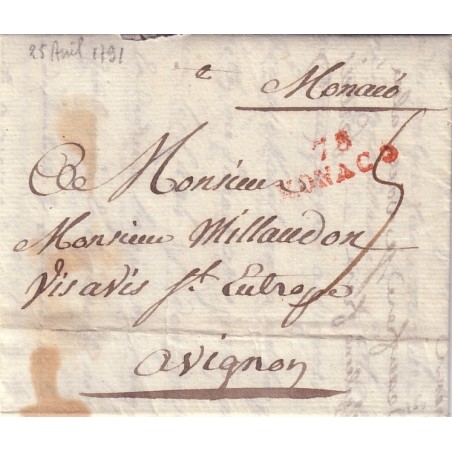 25 Avril 1791
Monaco
78
MONACO
A Monsieur
Monsieur Millaudon
vis avis St Eutrope
avignon